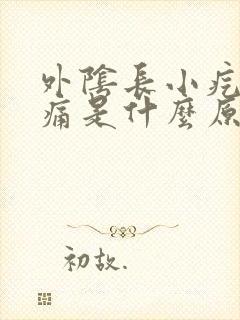 外陰長小疙
痛是什麼原
初故.